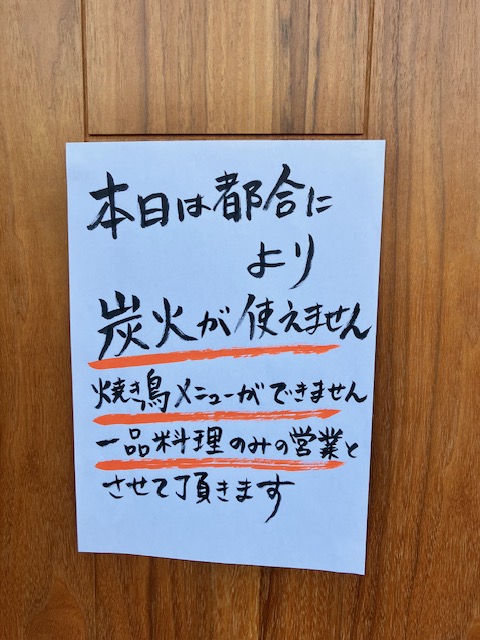 本日は都合に
より
炭火が使えません
焼き鳥メニューができません
一品料理のみの営業と
させて頂きます